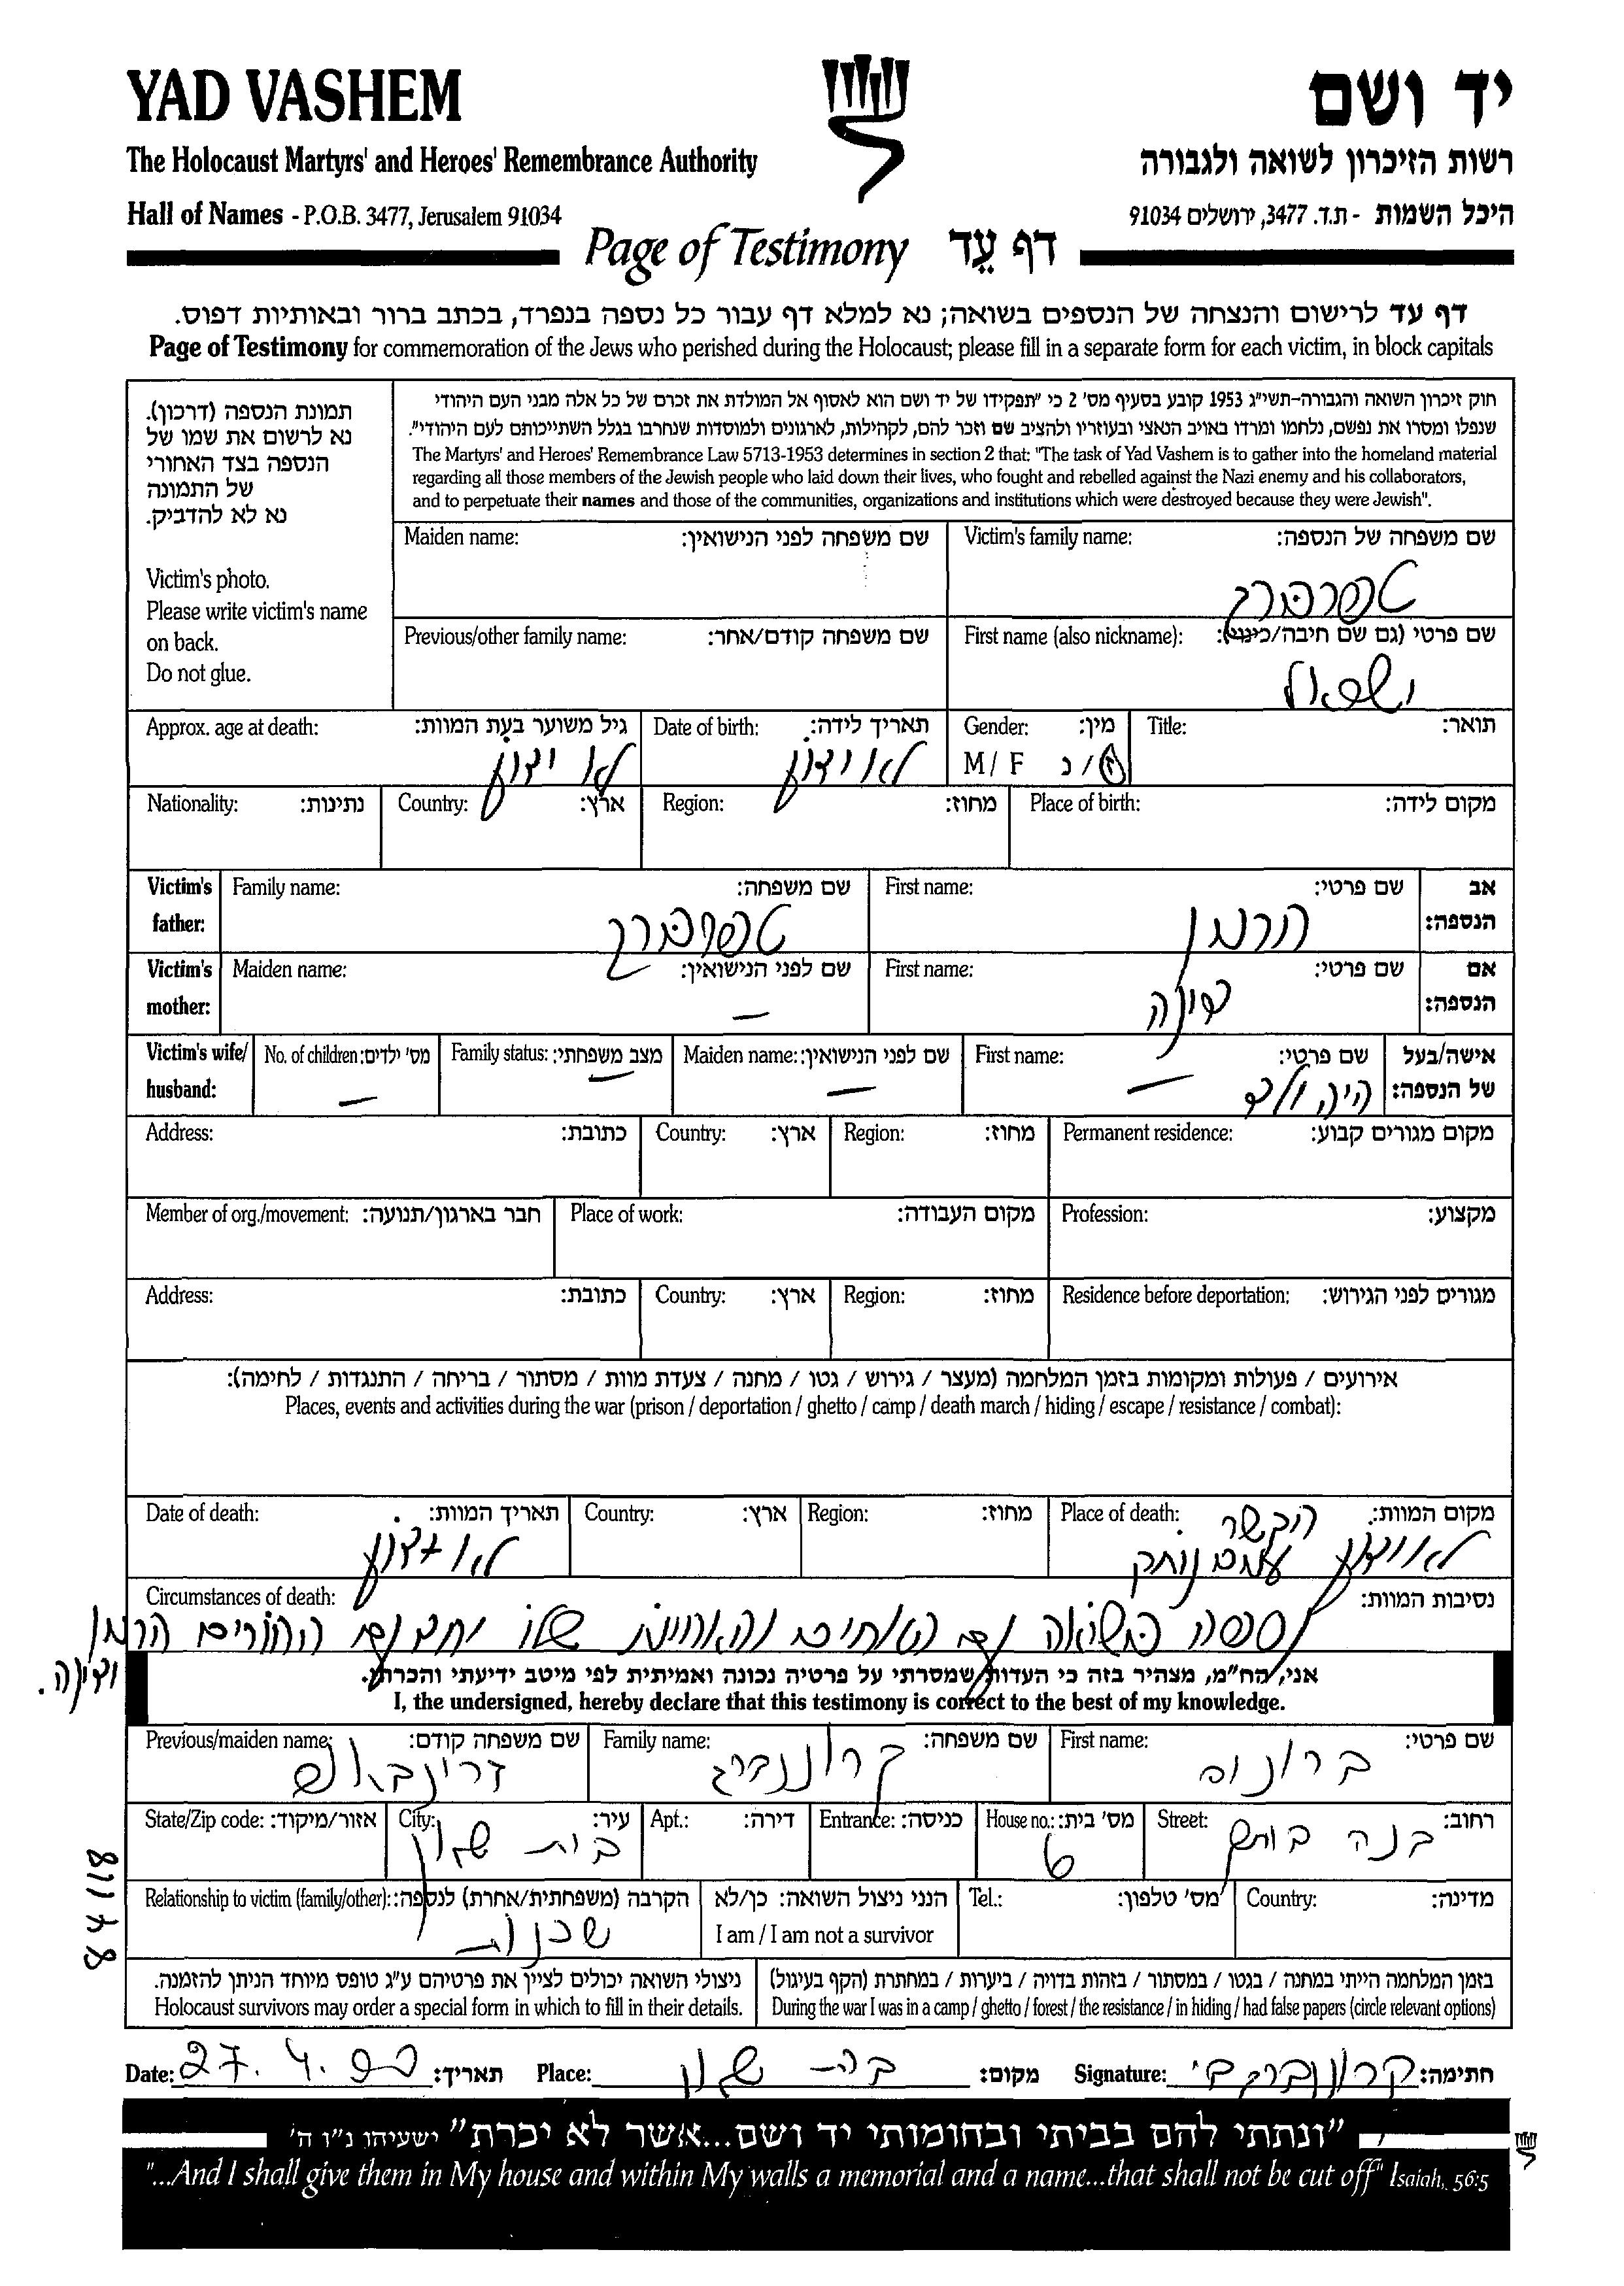 YAD VASHEM
יד ושם
The Holocaust Martyrs' and Heroes' Remembrance Authority
רשות הזיכרון לשואה ולגבורה
Hall of Names - P.O.B. 3477, Jerusalem 91034
היכל השמות - ת.ד. 3477, ירושלים 91034
Page of Testimony דף עֵד
דף עד לרישום והנצחה של הנספים בשואה; נא למלא דף עבור כל נספה בנפרד, בכתב ברור ובאותיות דפוס.
Page of Testimony for commemoration of the Jews who perished during the Holocaust; please fill in a separate form for each victim, in block capitals
תמונת הנספה (דרכון).
נא לרשום את שמו של
הנספה בצד האחורי
של התמונה
נא לא להדביק.
Victim's photo.
Please write victim's name
on back.
Do not glue.
חוק זיכרון השואה והגבורה-תשי"ג 1953 קובע בסעיף מס' 2 כי "תפקידו של יד ושם הוא לאסוף אל המולדת את זכרם של כל אלה מבני העם היהודי
שנפלו ומסרו את נפשם, נלחמו ומרדו באויב הנאצי ובעוזריו ולהציב שם וזכר להם, לקהילות, לארגונים ולמוסדות שנחרבו בגלל השתייכותם לעם היהודי".
The Martyrs' and Heroes' Remembrance Law 5713-1953 determines in section 2 that: "The task of Yad Vashem is to gather into the homeland material
regarding all those members of the Jewish people who laid down their lives, who fought and rebelled against the Nazi enemy and his collaborators,
and to perpetuate their names and those of the communities, organizations and institutions which were destroyed because they were Jewish".
Victim's family name: שם משפחה של הנספה:
Maiden name: שם משפחה לפני הנישואין:
First name (also nickname): שם פרטי (גם שם חיבה/כינוי):
Previous/other family name: שם משפחה קודם/אחר:
Title: תואר:
Gender: מין:
M / F ז/נ
Date of birth: תאריך לידה:
לא ידוע
Approx. age at death: גיל משוער בעת המוות:
לא ידוע
Place of birth: מקום לידה:
Region: מחוז:
Country: ארץ:
Nationality: נתינות:
Victim's father: אב הנספה:
First name: שם פרטי:
הרמן
Family name: שם משפחה:
Victim's mother: אם הנספה:
First name: שם פרטי:
Maiden name: שם לפני הנישואין:
—
Victim's wife/husband: אישה/בעל של הנספה:
First name: שם פרטי:
היה ילד —
Maiden name: שם לפני הנישואין:
—
Family status: מצב משפחתי:
—
No. of children: מס' ילדים:
—
Permanent residence: מקום מגורים קבוע:
Region: מחוז:
Country: ארץ:
Address: כתובת:
Profession: מקצוע:
Place of work: מקום העבודה:
Member of org./movement: חבר בארגון/תנועה:
Residence before deportation: מגורים לפני הגירוש:
Region: מחוז:
Country: ארץ:
Address: כתובת:
אירועים / פעולות ומקומות בזמן המלחמה (מעצר / גירוש / גטו / מחנה / צעדת מוות / מסתור / בריחה / התנגדות / לחימה):
Places, events and activities during the war (prison / deportation / ghetto / camp / death march / hiding / escape / resistance / combat):
Place of death: מקום המוות:
לא ידוע הקשר
Region: מחוז:
Country: ארץ:
Date of death: תאריך המוות:
לא ידוע
Circumstances of death: נסיבות המוות:
נספה בשואה עם האחים והאחיות שלו וגם ההורים הרמן
אני, הח"מ, מצהיר בזה כי העדות שמסרתי על פרטיה נכונה ואמיתית לפי מיטב ידיעתי והכרתי.
I, the undersigned, hereby declare that this testimony is correct to the best of my knowledge.
First name: שם פרטי:
ברונט
Family name: שם משפחה:
קרוננברג
Previous/maiden name: שם משפחה קודם:
Street: רחוב:
House no.: מס' בית:
6
Entrance: כניסה:
Apt.: דירה:
City: עיר:
בית שאן
State/Zip code: אזור/מיקוד:
Country: מדינה:
Tel.: מס' טלפון:
הנני ניצול השואה: כן/לא
I am / I am not a survivor
Relationship to victim (family/other): הקרבה (משפחתית/אחרת) לנספה:
בזמן המלחמה הייתי במחנה / בגטו / במסתור / בזהות בדויה / ביערות / במחתרת (הקף בעיגול)
During the war I was in a camp / ghetto / forest / the resistance / in hiding / had false papers (circle relevant options)
ניצולי השואה יכולים לציין את פרטיהם ע"ג טופס מיוחד הניתן להזמנה.
Holocaust survivors may order a special form in which to fill in their details.
Signature: חתימה:
Place: מקום:
Date: 27.4.99 תאריך:
"ונתתי להם בביתי ובחומותי יד ושם...אשר לא יכרת" ישעיהו נ"ו ה'
"...And I shall give them in My house and within My walls a memorial and a name...that shall not be cut off" Isaiah, 56:5